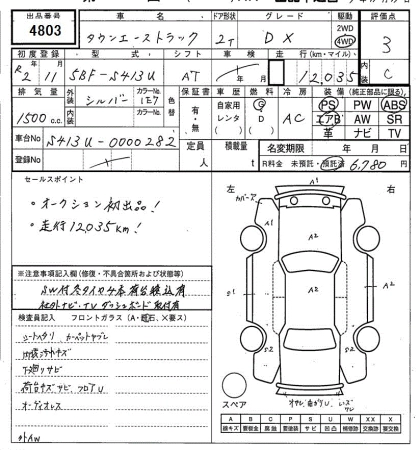 出品番号 車名 ドア形状 グレード 駆動 評価点
4803 タウンエーストラック 2T DX 2WD 4WD 3
初度登録 型式 シフト 車検 走行(km・マイル) 内装
R2年 11月 5BF-S413U AT 年 月 12,035 C
排気量 外装 カラーNo. 色替 保証書 車歴 燃料 冷房 装備(純正部品に限る)
1500 c.c. シルバー 1E7 有・無 自家用 レンタ ( ) G D ( ) AC PS PW ABS
内装 カラーNo. エアB AW SR
革 ナビ TV
車台No S413U-0000282 定員 人 積載量 t 名変期限 年 月 日
登録No R料金 未預託・預託済 6,780 円
セールスポイント
・オークション初出品!
・走行12,035km!
左 右
カバーア
A1
A2
A2
A2
S1
S2
S2
※注意事項記入欄(修復・不具合箇所および状態等)
SW付冬タイヤ4本荷台積込有
社外ナビ・TV ダッシュボード取付有
検査員記入 フロントガラス(A・飛石、X要ス)
シートスタリ カーペットヤブレ
内張キズ
下廻りサビ
荷台キズサビ フロアU
オーディオレス
外AW
スペア
A B C P S U W X XX
線キズ 要板金 腐蝕 要塗装 サビ 凹凸 補修跡 交換跡 要交換